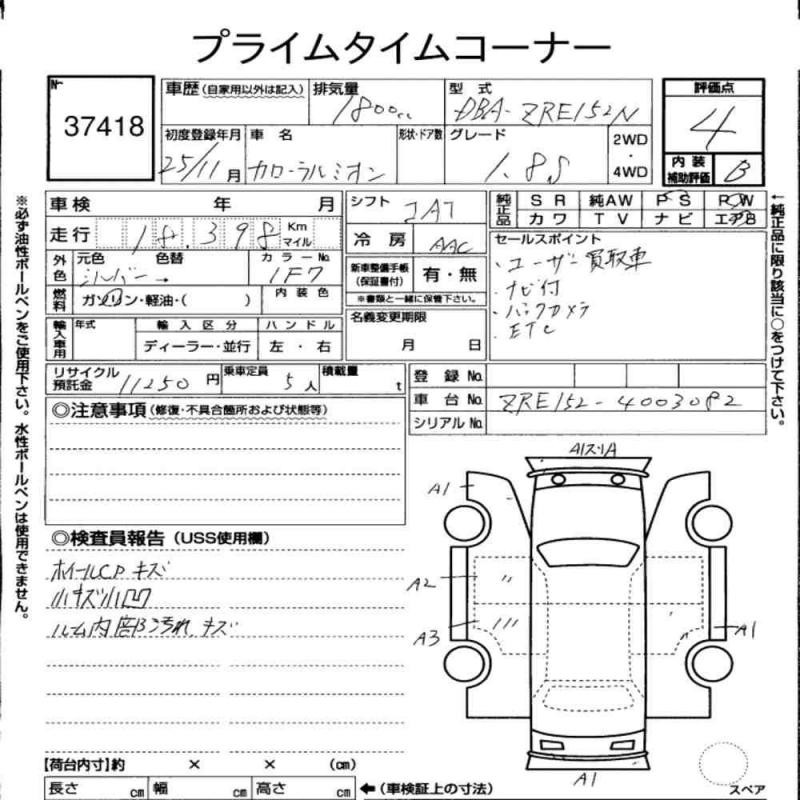 プライムタイムコーナー
No. 37418
車歴(自家用以外は記入) 排気量 1800cc 型式 DBA-ZRE152N 評価点 4
初度登録年月 25/11月 車名 カローラルミオン 形状・ドア数 グレード 1.8S 2WD・4WD 内装補助評価 B
車検 年 月 シフト IAT 純正品 SR 純AW PS PW
走行 18.398 Km マイル 冷房 AAC カワ TV ナビ エアB
外色 元色 シルバー 色替 → カラーNo. 1F7 新車整備手帳(保証書付) 有・無 セールスポイント
・ユーザー買取車
・ナビ付
・バックカメラ
・ETC
燃料 ガソリン・軽油・( ) 内装色 ※書類と一緒に保管下さい。
輸入車用 年式 輸入区分 ハンドル 名義変更期限
ディーラー・並行 左・右 月 日
リサイクル預託金 11250円 乗車定員 5人 積載量 t 登録No.
車台No. ZRE152-4003082
シリアルNo.
◎注意事項(修復・不具合箇所および状態等)
◎検査員報告(USS使用欄)
ホイールCPキズ
小キズ小凹
ルーム内部汚れ、キズ
A1スリA
A1
A2
A3
A1
A1
【荷台内寸】約 × × (cm)
長さ cm 幅 cm 高さ cm ←(車検証上の寸法)
スペア
※必ず油性ボールペンをご使用下さい。水性ボールペンは使用できません。
←純正品に限り該当に○をつけて下さい。